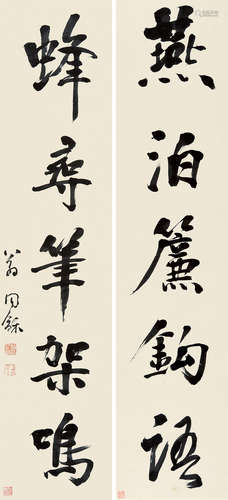 燕泊簾鉤語
蜂尋筆架鳴
翁同龢